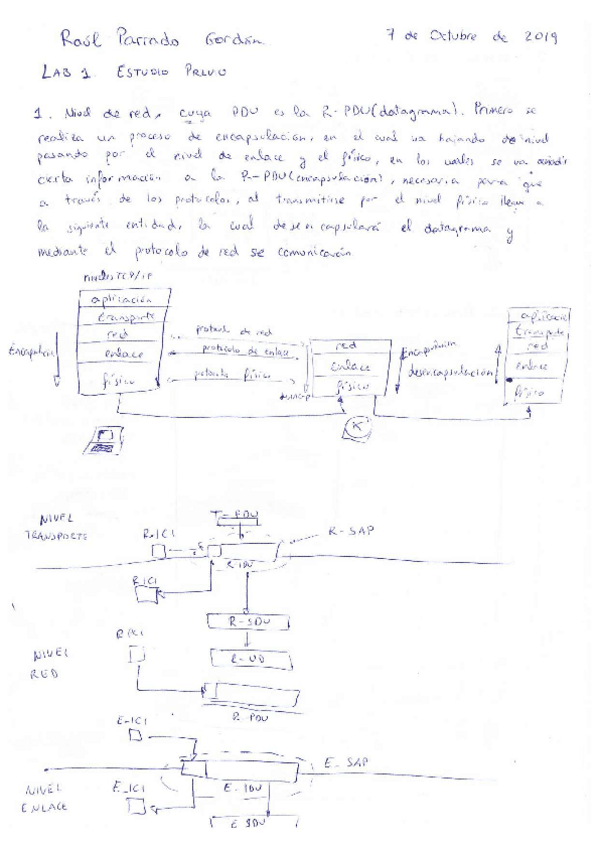 Raúl Parrado Gordón 7 de Octubre de 2019
LAB 1 ESTUDIO PREVIO
1. Nivel de red, cuya PDU es la R-PDU (datagrama). Primero se
realiza un proceso de encapsulación, en el cual va bajando de nivel
pasando por el nivel de enlace y el físico, en los cuales se va añadir
cierta información a la R-PDU (encapsulación), necesaria para que
a través de los protocolos, al transmitirse por el nivel físico llegue a
la siguiente entidad, la cual desencapsulará el datagrama y
mediante el protocolo de red se comunicarán
TCP/IP
aplicación
transporte
red
enlace
físico
protocolo de red
protocolo de enlace
protocolo físico
red
enlace
físico
Encapsulación
desencapsulación
transporte
red
enlace
físico
NIVEL
TRANSPORTE
R-ICI
R-SAP
R-IDU
R-ICI
R-SDU
NIVEL
RED
R-PCI
R-UD
R-PDU
E-ICI
E-SAP
NIVEL
ENLACE
E-ICI
E-IDU
E-SDU